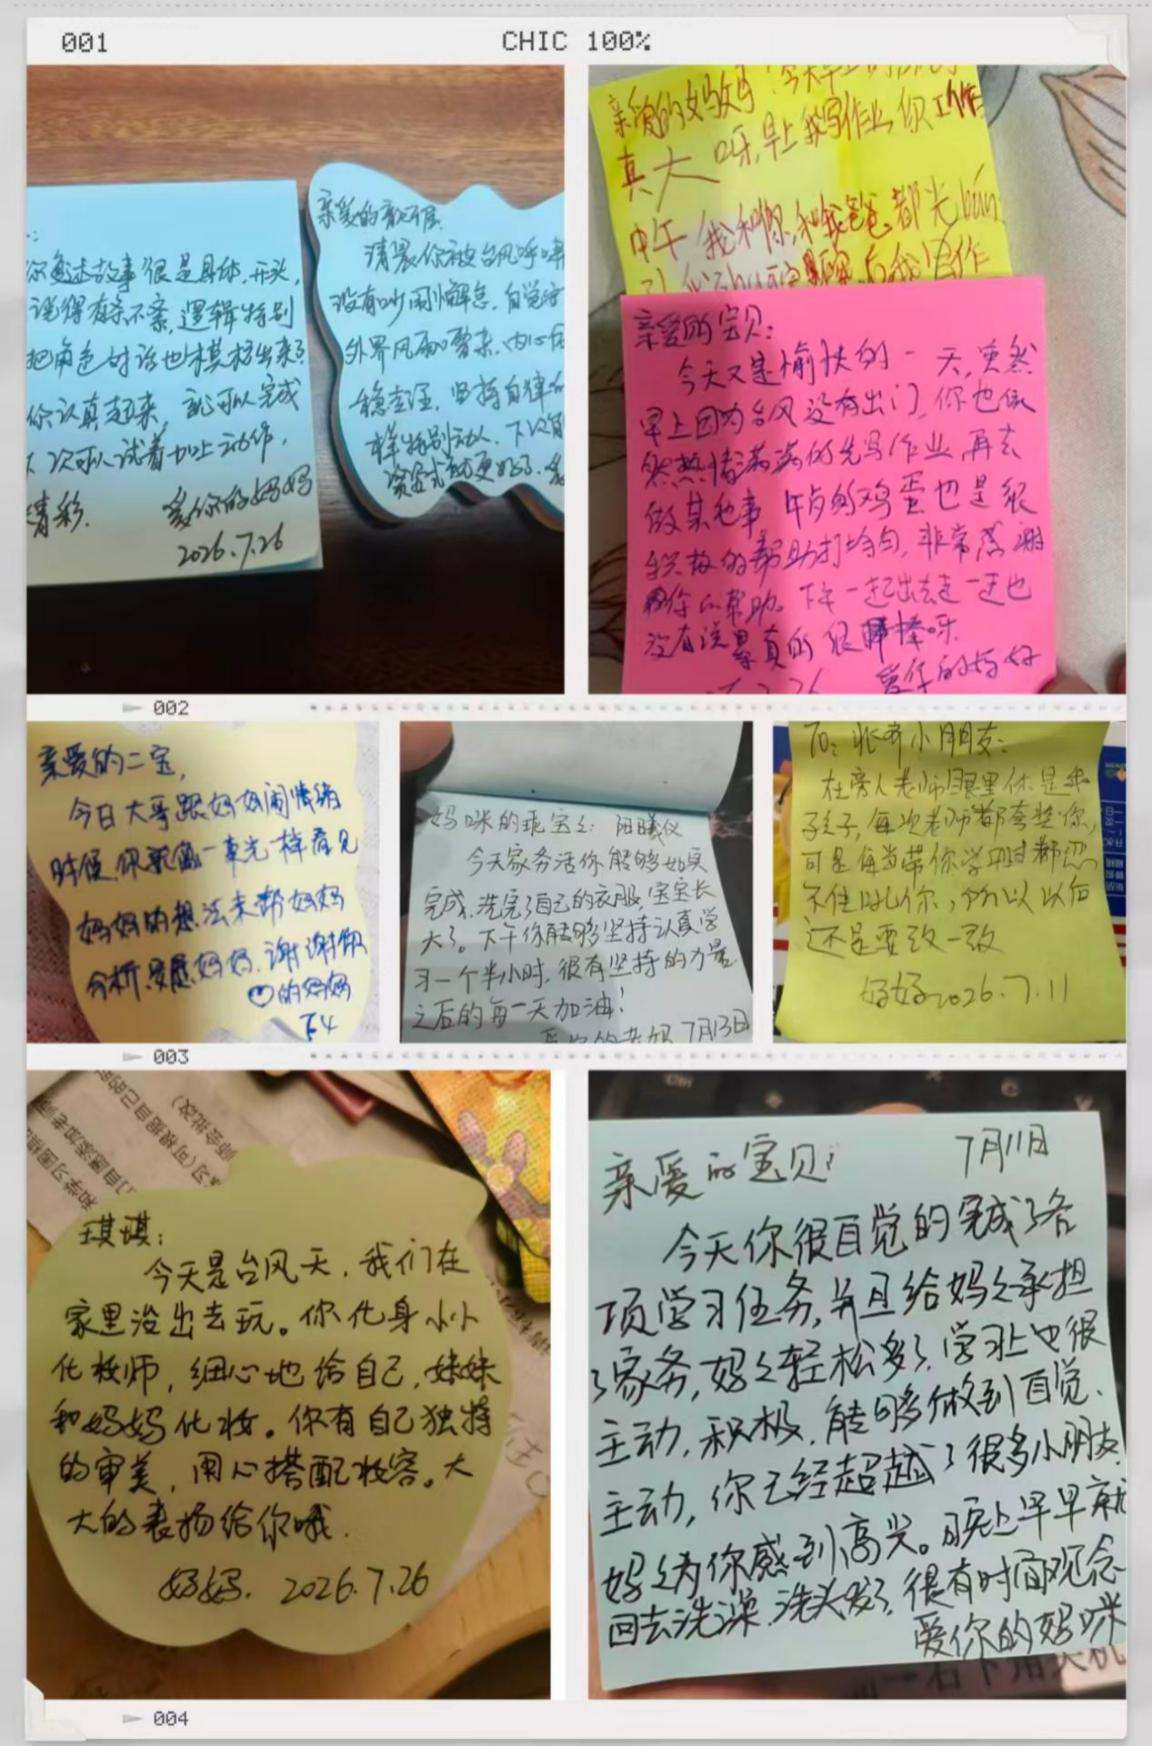 001
CHIC 100%
你复述故事很是具体，开头，
说得有条不紊，逻辑特别
把角色对话也模样出来了
你认真起来，就可以完成
下次可以试着加上动作，
精彩. 爱你的妈妈
2026.7.26
亲爱的
清晨你被台风呼啸
没有吵闹懈怠，自觉
外界风雨，内心
稳，坚持自律
样特别动人，下次
更好了.
亲爱的妈妈！今天早上的
真大呀，早上我写作业，你工作
中午我和你，和我爸爸都光bún
后我
亲爱的宝贝：
今天又是愉快的一天，虽然
早上因为台风没有出门，你也依
然热情满满的先写作业，再去
做其他事，午的鸡蛋也是很
积极的帮助打均匀，非常感谢
你的帮助。下午一起出去走一走也
没有说累真的很棒呀.
爱你的妈妈
002
亲爱的二宝，
今日大哥跟妈妈闹情绪
时候，你就像一束光一样看见
妈妈的想法来帮妈妈
分析，安慰妈妈，谢谢你
♡的妈妈
妈咪的乖宝々：阳曦仪
今天家务活你能够如实
完成，洗完了自己的衣服，宝宝长
大了。下午你能够坚持认真学
习一个半小时，很有坚持的力量，
之后的每一天加油！
7月13日
To：张齐小朋友：
在旁人老师眼里你是乖
孩子，每次老师都夸奖你，
可是每当带你学习时都忍
不住吼你，所以以后
还是要改一改
妈妈2026.7.11
003
琪琪：
今天是台风天，我们在
家里没出去玩。你化身小小
化妆师，细心地给自己，妹妹
和妈妈化妆。你有自己独特
的审美，用心搭配妆容。大
大的表扬给你哦.
妈妈. 2026.7.26
7月11日
亲爱的宝贝：
今天你很自觉的完成了各
项学习任务，并且给妈々承担
了家务，妈々轻松多了，学习上也很
主动，积极，能够做到自觉、
主动，你已经超越了很多小朋友，
妈々为你感到高兴。晚上早早就
回去洗澡，洗头发了，很有时间观念
爱你的妈咪
004